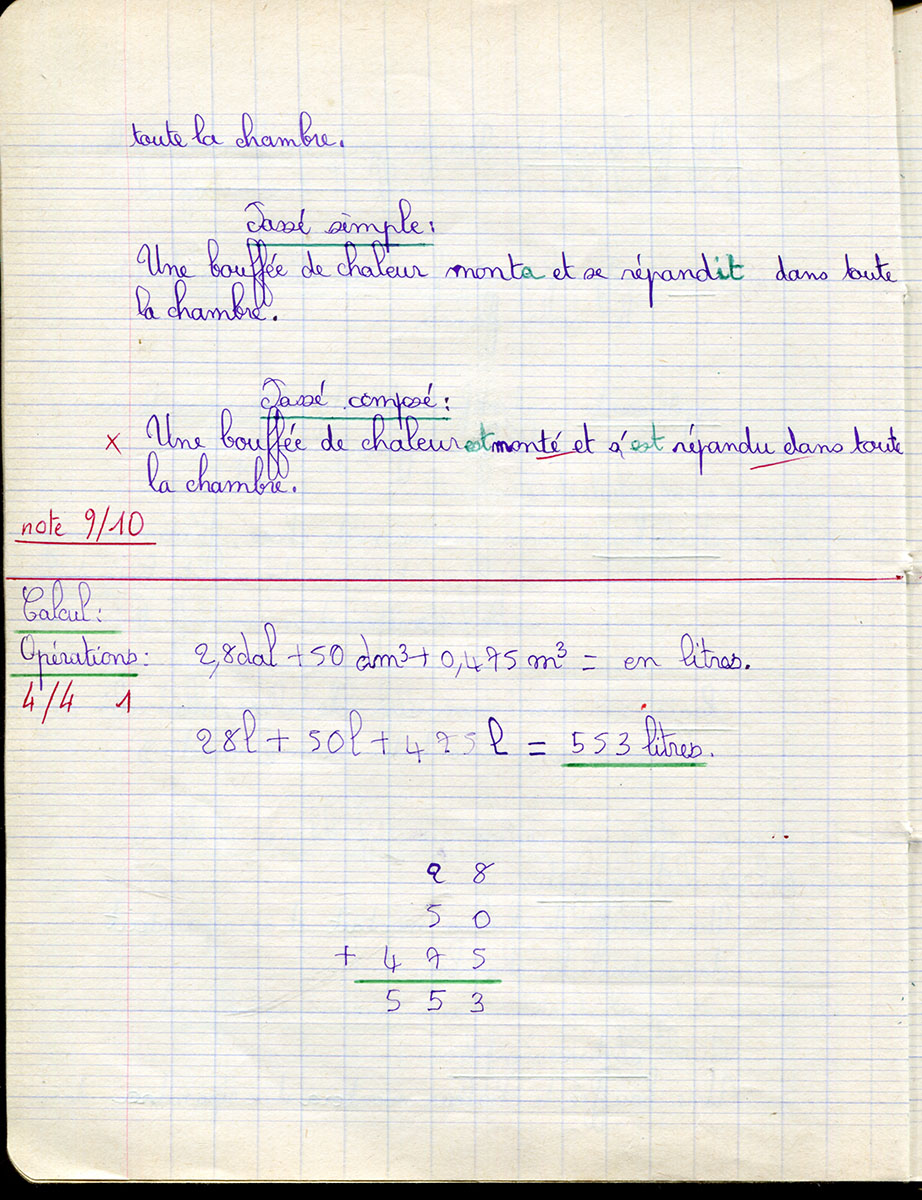 toute la chambre.
Passé simple:
Une bouffée de chaleur monta et se répandit dans toute
la chambre.
Passé composé:
x Une bouffée de chaleur est monté et s'est répandu dans toute
la chambre.
note 9/10
Calcul:
Opérations: 2,8dal + 50 dm³ + 0,475 m³ = en litres.
4/4 1
28l + 50l + 475l = 553 litres.
28
50
+ 475
553